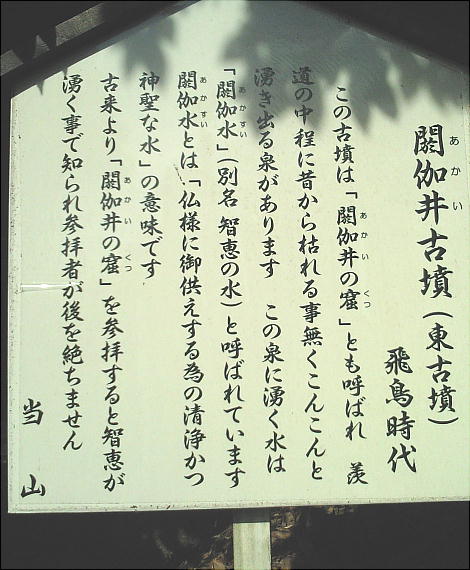 閼伽井古墳(東古墳)
あかい
飛鳥時代
この古墳は「閼伽井の窟」とも呼ばれ 羨
あかい くつ
道の中程に昔から枯れる事無くこんこんと
湧き出る泉があります この泉に湧く水は
「閼伽水」(別名 智恵の水)と呼ばれています
あかすい
閼伽水とは「仏様に御供えする為の清浄かつ
あかすい
神聖な水」の意味です
古来より「閼伽井の窟」を参拝すると智恵が
あかい くつ
湧く事で知られ参拝者が後を絶ちません
当山